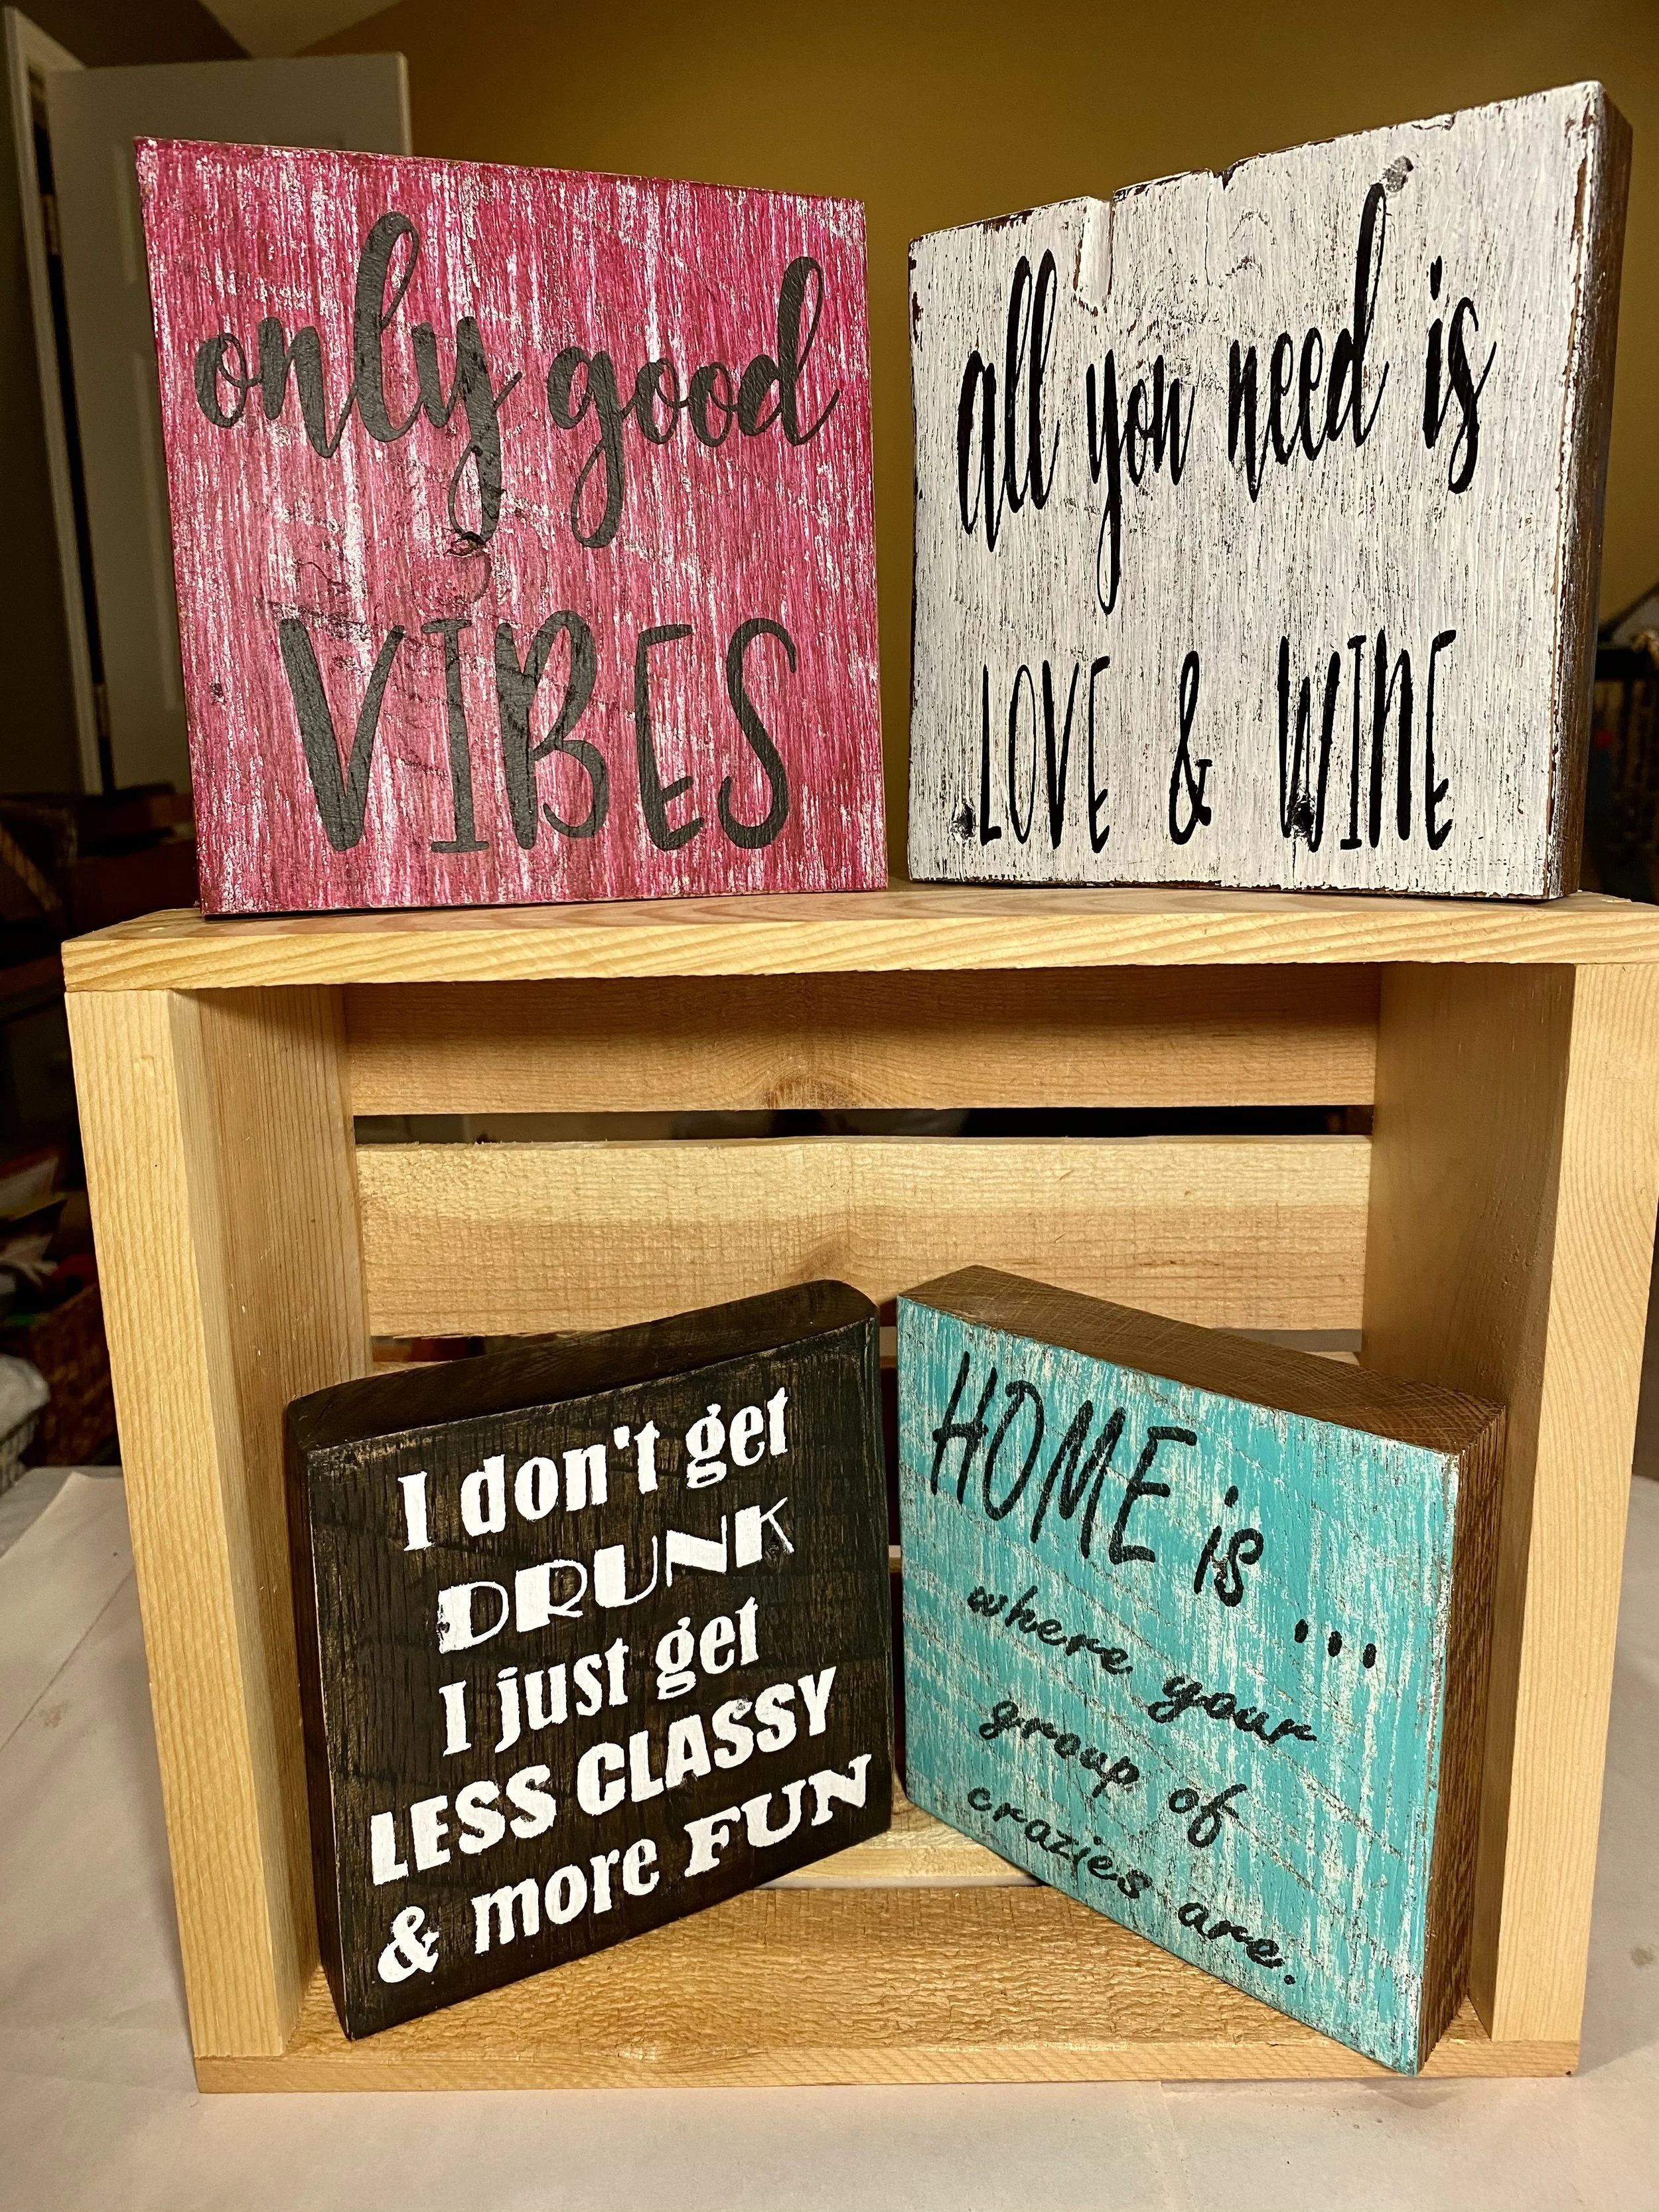 only good
VIBES
all you need is
LOVE & WINE
I don't get
DRUNK
I just get
LESS CLASSY
& more FUN
HOME is ...
where your
group of
crazies are.